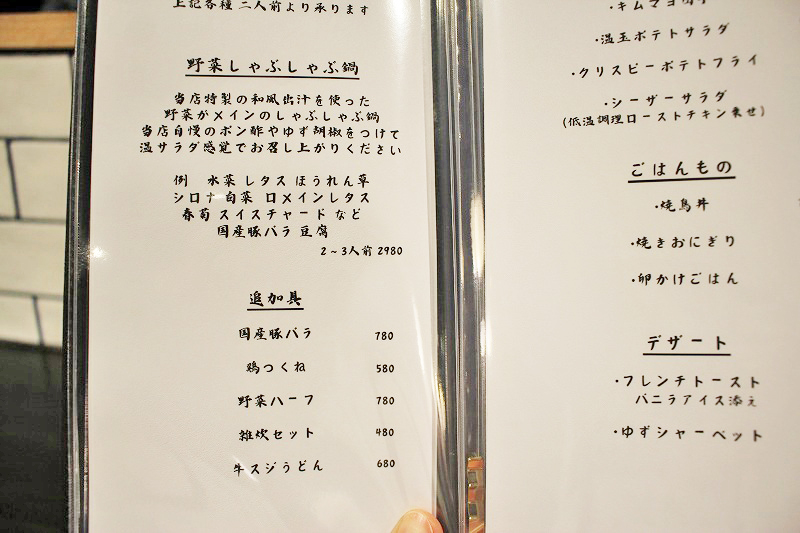 上記各種 二人前より承ります
野菜しゃぶしゃぶ鍋
当店特製の和風出汁を使った
野菜がメインのしゃぶしゃぶ鍋
当店自慢のポン酢やゆず胡椒をつけて
温サラダ感覚でお召し上がりください
例 水菜 レタス ほうれん草
シロナ 白菜 ロメインレタス
春菊 スイスチャード など
国産豚バラ 豆腐
2~3人前 2980
追加具
国産豚バラ 780
鶏つくね 580
野菜ハーフ 780
雑炊セット 480
牛スジうどん 680
・温玉ポテトサラダ
・クリスピーポテトフライ
・シーザーサラダ
(低温調理ローストチキン乗せ)
ごはんもの
・焼鳥丼
・焼きおにぎり
・卵かけごはん
デザート
・フレンチトースト
バニラアイス添え
・ゆずシャーベット